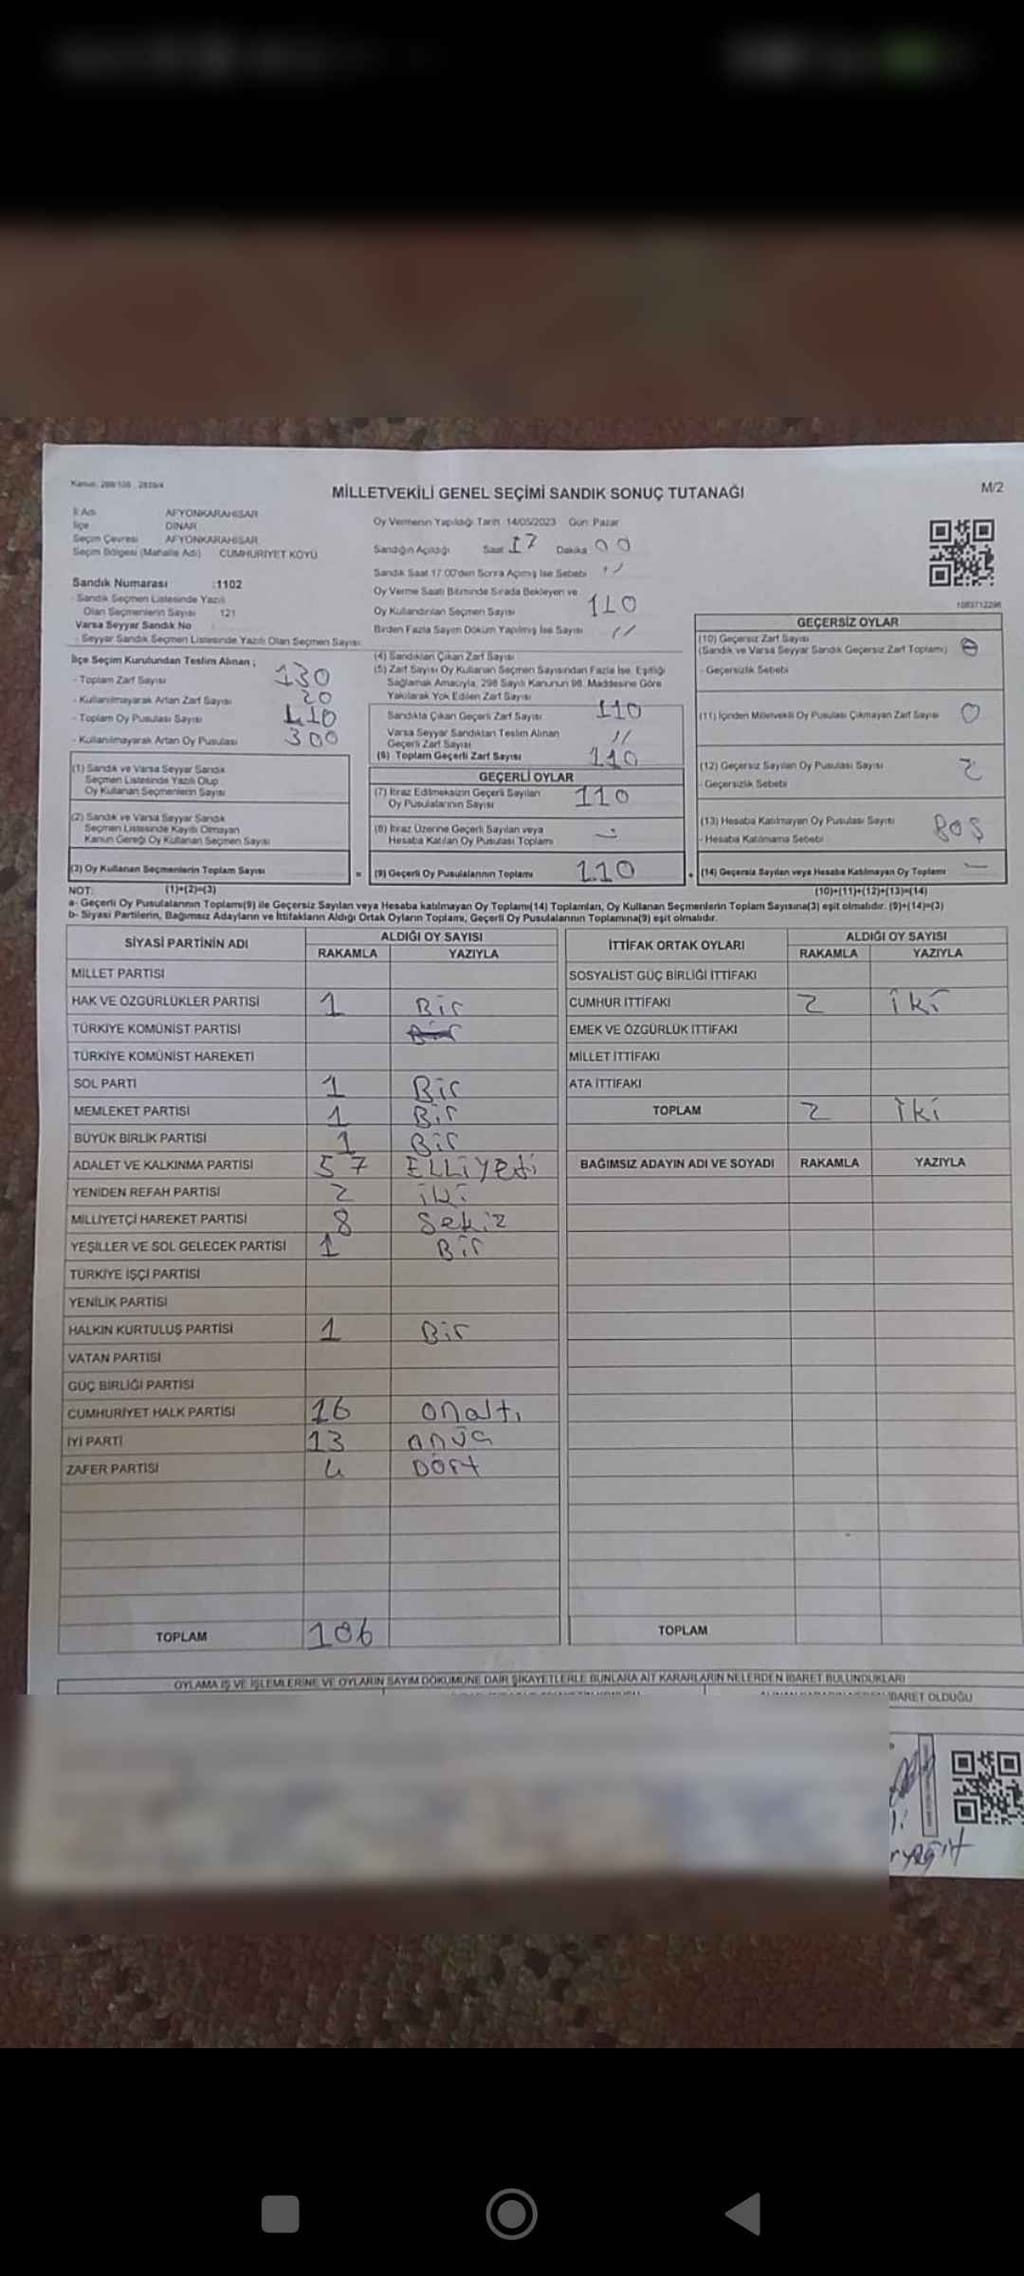 Kanun: 298/105 , 2839/4
MİLLETVEKİLİ GENEL SEÇİMİ SANDIK SONUÇ TUTANAĞI
M/2
İl Adı AFYONKARAHİSAR
İlçe DİNAR
Seçim Çevresi AFYONKARAHİSAR
Seçim Bölgesi (Mahalle Adı) CUMHURİYET KÖYÜ
Sandık Numarası :1102
- Sandık Seçmen Listesinde Yazılı
Olan Seçmenlerin Sayısı 121
Varsa Seyyar Sandık No
- Seyyar Sandık Seçmen Listesinde Yazılı Olan Seçmen Sayısı
İlçe Seçim Kurulundan Teslim Alınan ;
- Toplam Zarf Sayısı 130
- Kullanılmayarak Artan Zarf Sayısı 20
- Toplam Oy Pusulası Sayısı 410
- Kullanılmayarak Artan Oy Pusulası 300
(1) Sandık ve Varsa Seyyar Sandık
Seçmen Listesinde Yazılı Olup
Oy Kullanan Seçmenlerin Sayısı
(2) Sandık ve Varsa Seyyar Sandık
Seçmen Listesinde Kayıtlı Olmayan
Kanun Gereği Oy Kullanan Seçmen Sayısı
(3) Oy Kullanan Seçmenlerin Toplam Sayısı =
Oy Vermenin Yapıldığı Tarih: 14/05/2023 Gün: Pazar
Sandığın Açıldığı Saat 17 Dakika 00
Sandık Saat 17:00'den Sonra Açılmış İse Sebebi //
Oy Verme Saati Bitiminde Sırada Bekleyen ve
Oy Kullandırılan Seçmen Sayısı 110
Birden Fazla Sayım Döküm Yapılmış İse Sayısı //
(4) Sandıktan Çıkan Zarf Sayısı
(5) Zarf Sayısı Oy Kullanan Seçmen Sayısından Fazla İse, Eşitliği
Sağlamak Amacıyla, 298 Sayılı Kanunun 98. Maddesine Göre
Yakılarak Yok Edilen Zarf Sayısı
Sandıkta Çıkan Geçerli Zarf Sayısı 110
Varsa Seyyar Sandıktan Teslim Alınan
Geçerli Zarf Sayısı //
(6) Toplam Geçerli Zarf Sayısı 110
GEÇERLİ OYLAR
(7) İtiraz Edilmeksizin Geçerli Sayılan
Oy Pusulalarının Sayısı 110
(8) İtiraz Üzerine Geçerli Sayılan veya
Hesaba Katılan Oy Pusulası Toplamı
(9) Geçerli Oy Pusulalarının Toplamı 110 +
1083712296
GEÇERSİZ OYLAR
(10) Geçersiz Zarf Sayısı
(Sandık ve Varsa Seyyar Sandık Geçersiz Zarf Toplamı)
- Geçersizlik Sebebi
(11) İçinden Milletvekili Oy Pusulası Çıkmayan Zarf Sayısı 0
(12) Geçersiz Sayılan Oy Pusulası Sayısı 2
- Geçersizlik Sebebi
(13) Hesaba Katılmayan Oy Pusulası Sayısı BOŞ
- Hesaba Katılmama Sebebi
(14) Geçersiz Sayılan veya Hesaba Katılmayan Oy Toplamı —
NOT: (1)+(2)=(3) (10)+(11)+(12)+(13)=(14)
a- Geçerli Oy Pusulalarının Toplamı(9) ile Geçersiz Sayılan veya Hesaba katılmayan Oy Toplamı(14) Toplamları, Oy Kullanan Seçmenlerin Toplam Sayısına(3) eşit olmalıdır. (9)+(14)=(3)
b- Siyasi Partilerin, Bağımsız Adayların ve İttifakların Aldığı Ortak Oyların Toplamı, Geçerli Oy Pusulalarının Toplamına(9) eşit olmalıdır.
SİYASİ PARTİNİN ADI ALDIĞI OY SAYISI
RAKAMLA YAZIYLA
MİLLET PARTİSİ
HAK VE ÖZGÜRLÜKLER PARTİSİ 1 Bir
TÜRKİYE KOMÜNİST PARTİSİ
TÜRKİYE KOMÜNİST HAREKETİ
SOL PARTİ 1 Bir
MEMLEKET PARTİSİ 1 Bir
BÜYÜK BİRLİK PARTİSİ 1 Bir
ADALET VE KALKINMA PARTİSİ 57 ELLİYEDİ
YENİDEN REFAH PARTİSİ 2 iki
MİLLİYETÇİ HAREKET PARTİSİ 8 Sekiz
YEŞİLLER VE SOL GELECEK PARTİSİ 1 Bir
TÜRKİYE İŞÇİ PARTİSİ
YENİLİK PARTİSİ
HALKIN KURTULUŞ PARTİSİ 1 Bir
VATAN PARTİSİ
GÜÇ BİRLİĞİ PARTİSİ
CUMHURİYET HALK PARTİSİ 16 onaltı
İYİ PARTİ 13 onüç
ZAFER PARTİSİ 4 Dört
TOPLAM 106
İTTİFAK ORTAK OYLARI ALDIĞI OY SAYISI
RAKAMLA YAZIYLA
SOSYALİST GÜÇ BİRLİĞİ İTTİFAKI
CUMHUR İTTİFAKI 2 iki
EMEK VE ÖZGÜRLÜK İTTİFAKI
MİLLET İTTİFAKI
ATA İTTİFAKI
TOPLAM 2 iki
BAĞIMSIZ ADAYIN ADI VE SOYADI RAKAMLA YAZIYLA
TOPLAM
OYLAMA İŞ VE İŞLEMLERİNE VE OYLARIN SAYIM DÖKÜMÜNE DAİR ŞİKAYETLERLE BUNLARA AİT KARARLARIN NELERDEN İBARET BULUNDUKLARI
İBARET OLDUĞU